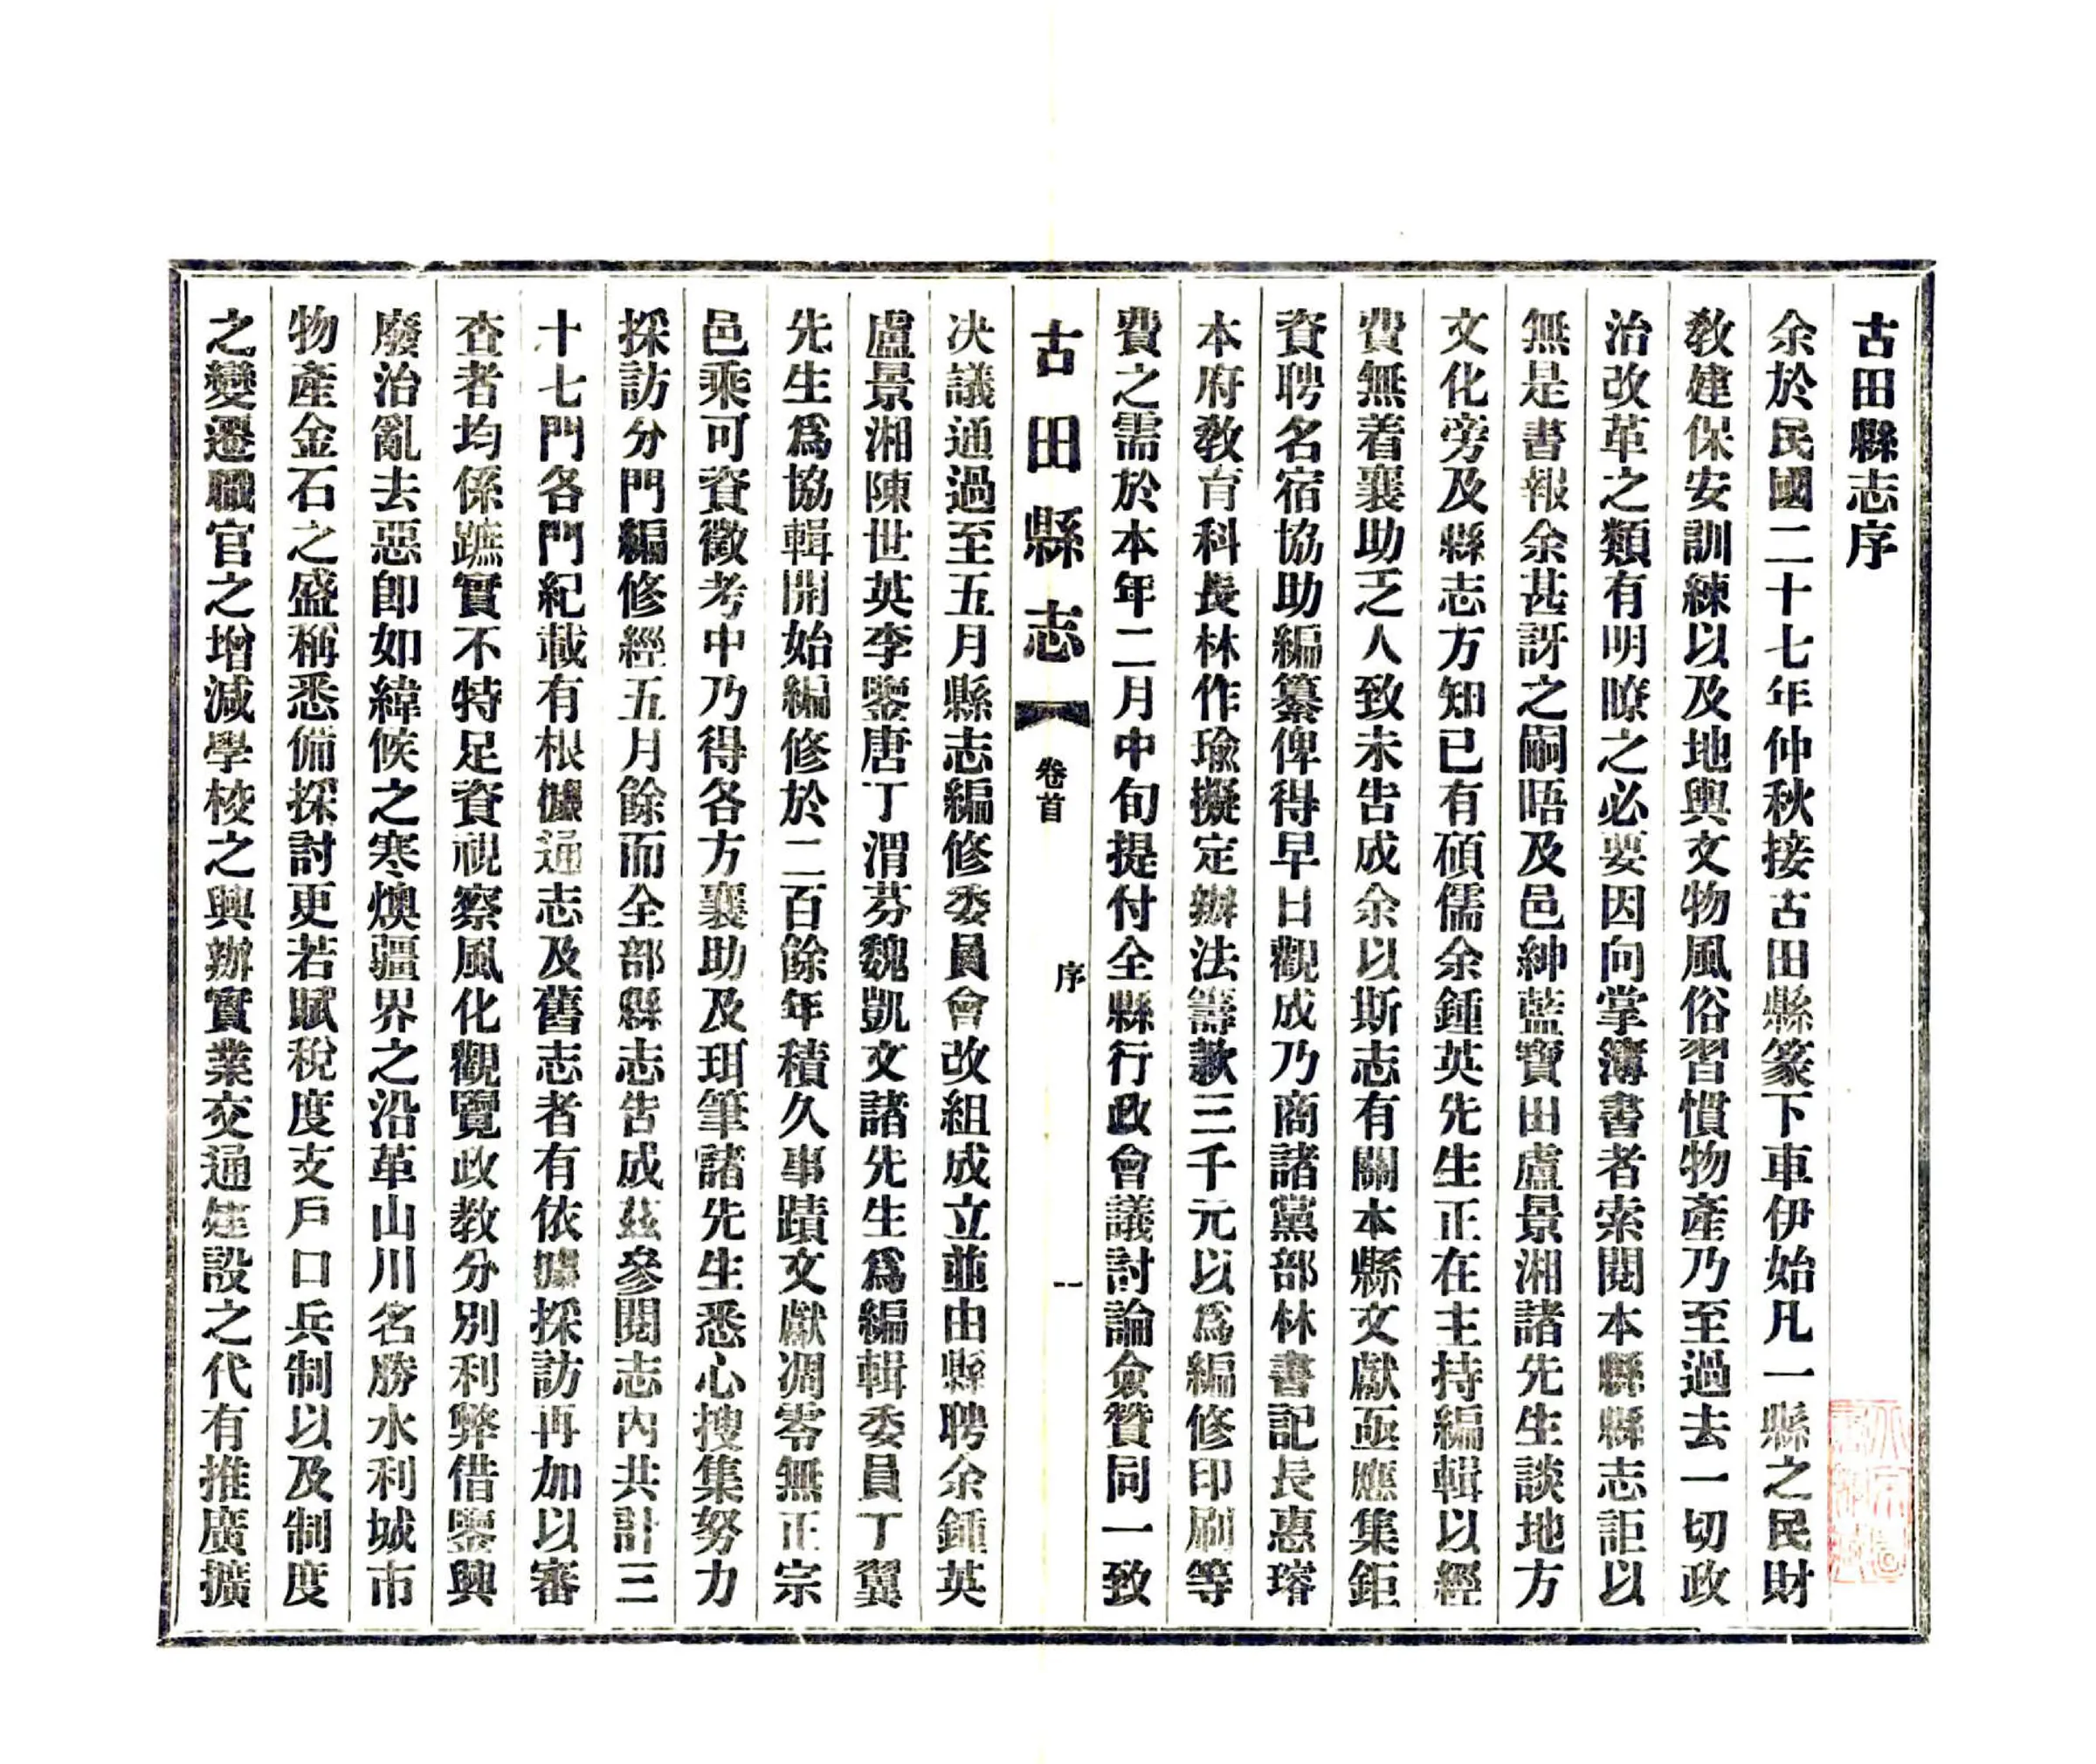 古田縣志序
余於民國二十七年仲秋接古田縣篆下車伊始凡一縣之民財
敎建保安訓練以及地與文物風俗習慣物產乃至過去一切政
治改革之類有明瞭之必要因向掌簿書者索閱本縣縣志詎以
無是書報余甚訝之嗣晤及邑紳藍寶田盧景湘諸先生談地方
文化旁及縣志方知已有碩儒余鍾英先生正在主持編輯以經
費無着襄助乏人致未告成余以斯志有關本縣文獻亟應集鉅
資聘名宿協助編纂俾得早日觀成乃商諸黨部林書記長惠瑢
本府敎育科長林作瑜擬定辦法籌欵三千元以爲編修印刷等
費之需於本年二月中旬提付全縣行政會議討論僉贊同一致
古田縣志
卷首
序
一
决議通過至五月縣志編修委員會改組成立並由縣聘余鍾英
盧景湘陳世英李鑒唐丁渭芬魏凱文諸先生爲編輯委員丁翼
先生爲協輯開始編修於二百餘年積久事蹟文獻凋零無正宗
邑乘可資徵考中乃得各方襄助及珥筆諸先生悉心搜集努力
採訪分門編修經五月餘而全部縣志告成茲參閱志內共計三
十七門各門紀載有根據通志及舊志者有依據採訪再加以審
查者均係蹠實不特足資視察風化觀覽政教分別利弊借鑒興
廢治亂去惡卽如緯候之寒燠疆界之沿革山川名勝水利城市
物產金石之盛稱悉備探討更若賦稅度支戶口兵制以及制度
之變遷職官之增減學校之興辦實業交通建設之代有推廣擴